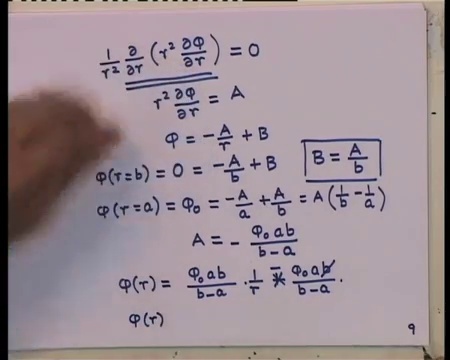 1/r² ∂/∂r (r² ∂φ/∂r) = 0
r² ∂φ/∂r = A
φ = -A/r + B
φ(r=b) = 0 = -A/b + B
B = A/b
φ(r=a) = φ₀ = -A/a + A/b = A(1/b - 1/a)
A = - φ₀ab/b-a
φ(r) = φ₀ab/b-a · 1/r - φ₀a/b-a .
φ(r)
9